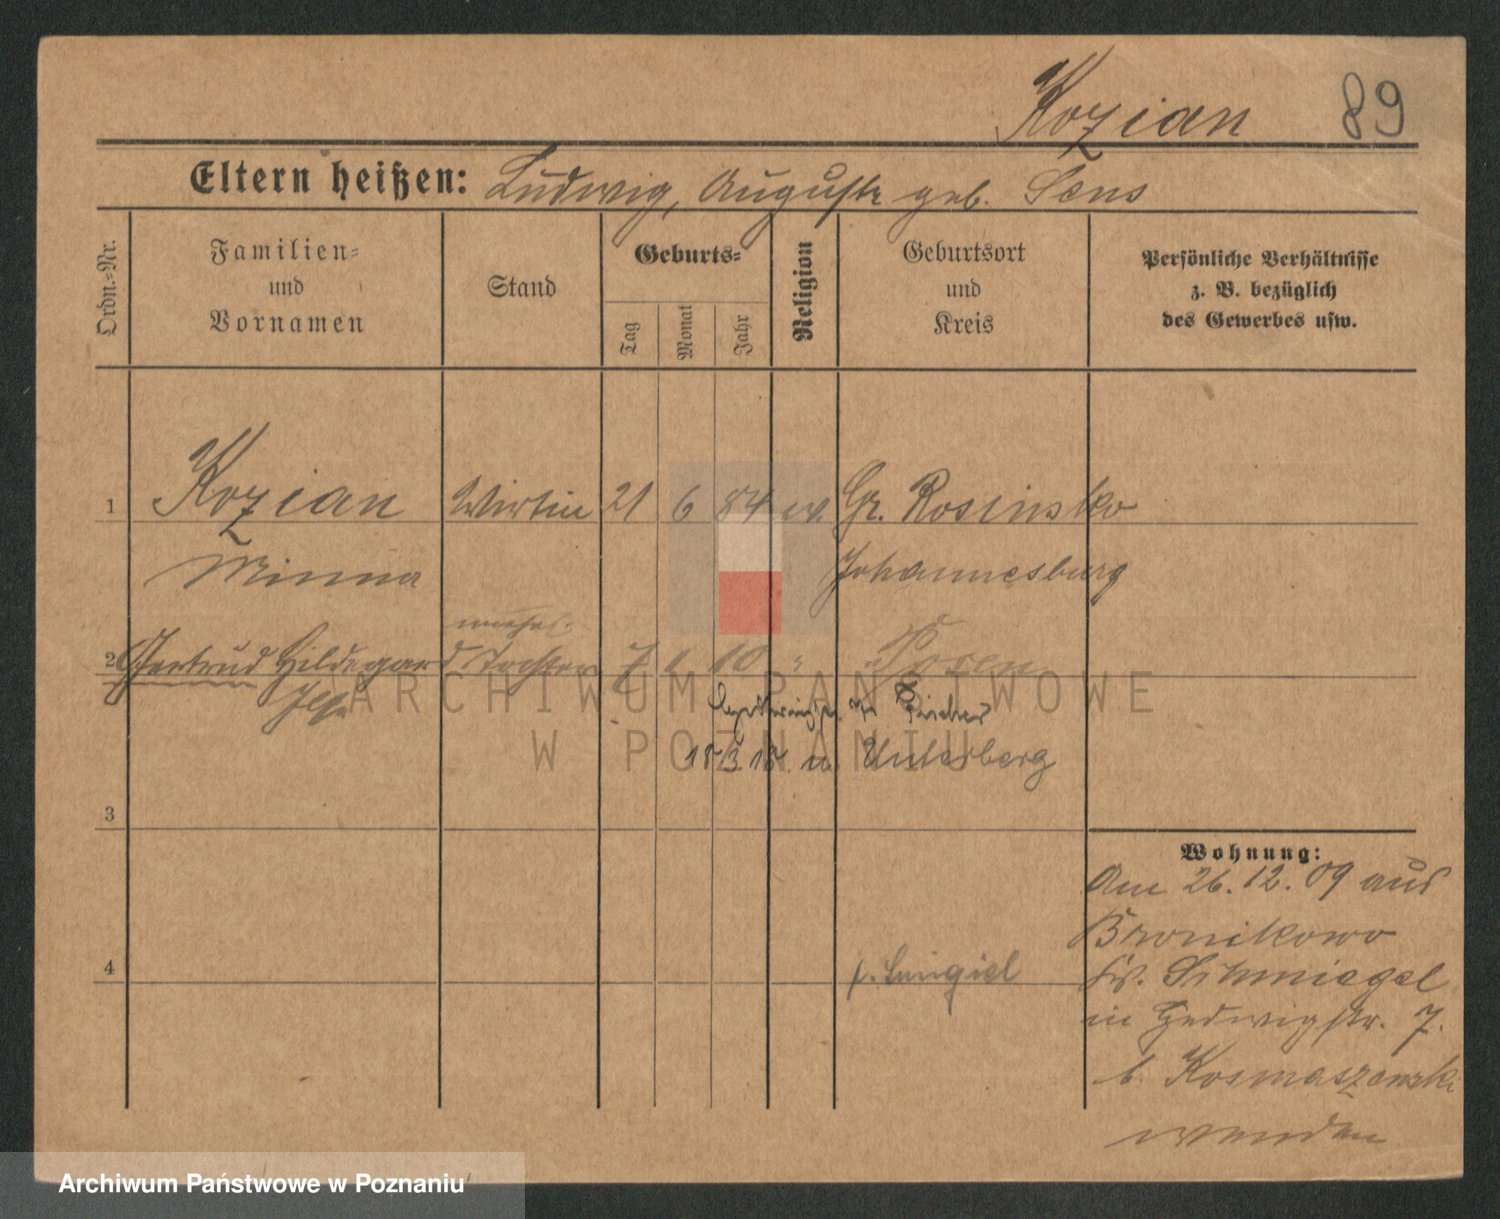 Kozian 89
Eltern heißen: Ludwig, Auguste geb. Sens
Ordn.-Nr.
Familien-
und
Vornamen
Stand
Geburts-
Tag
Monat
Jahr
Religion
Geburtsort
und
Kreis
Persönliche Verhältnisse
z. B. bezüglich
des Gewerbes usw.
1 Kozian Wirtin 21 6 84 ev. Gr. Rosinsko
Minna Johannesburg
unehel.
2 Gertrud Hildegard Tochter 7 10 " Posen
Ilse
in
18 3 18. Unterberg
3
Wohnung:
Am 26.12.09 aus
Bronikowo
4
f. Smigiel
Kr. Schmiegel
in Hedwigstr. 7.
b. Kosmaszewski
wenden
ARCHIWUM PAŃSTWOWE
W POZNANIU
Archiwum Państwowe w Poznaniu